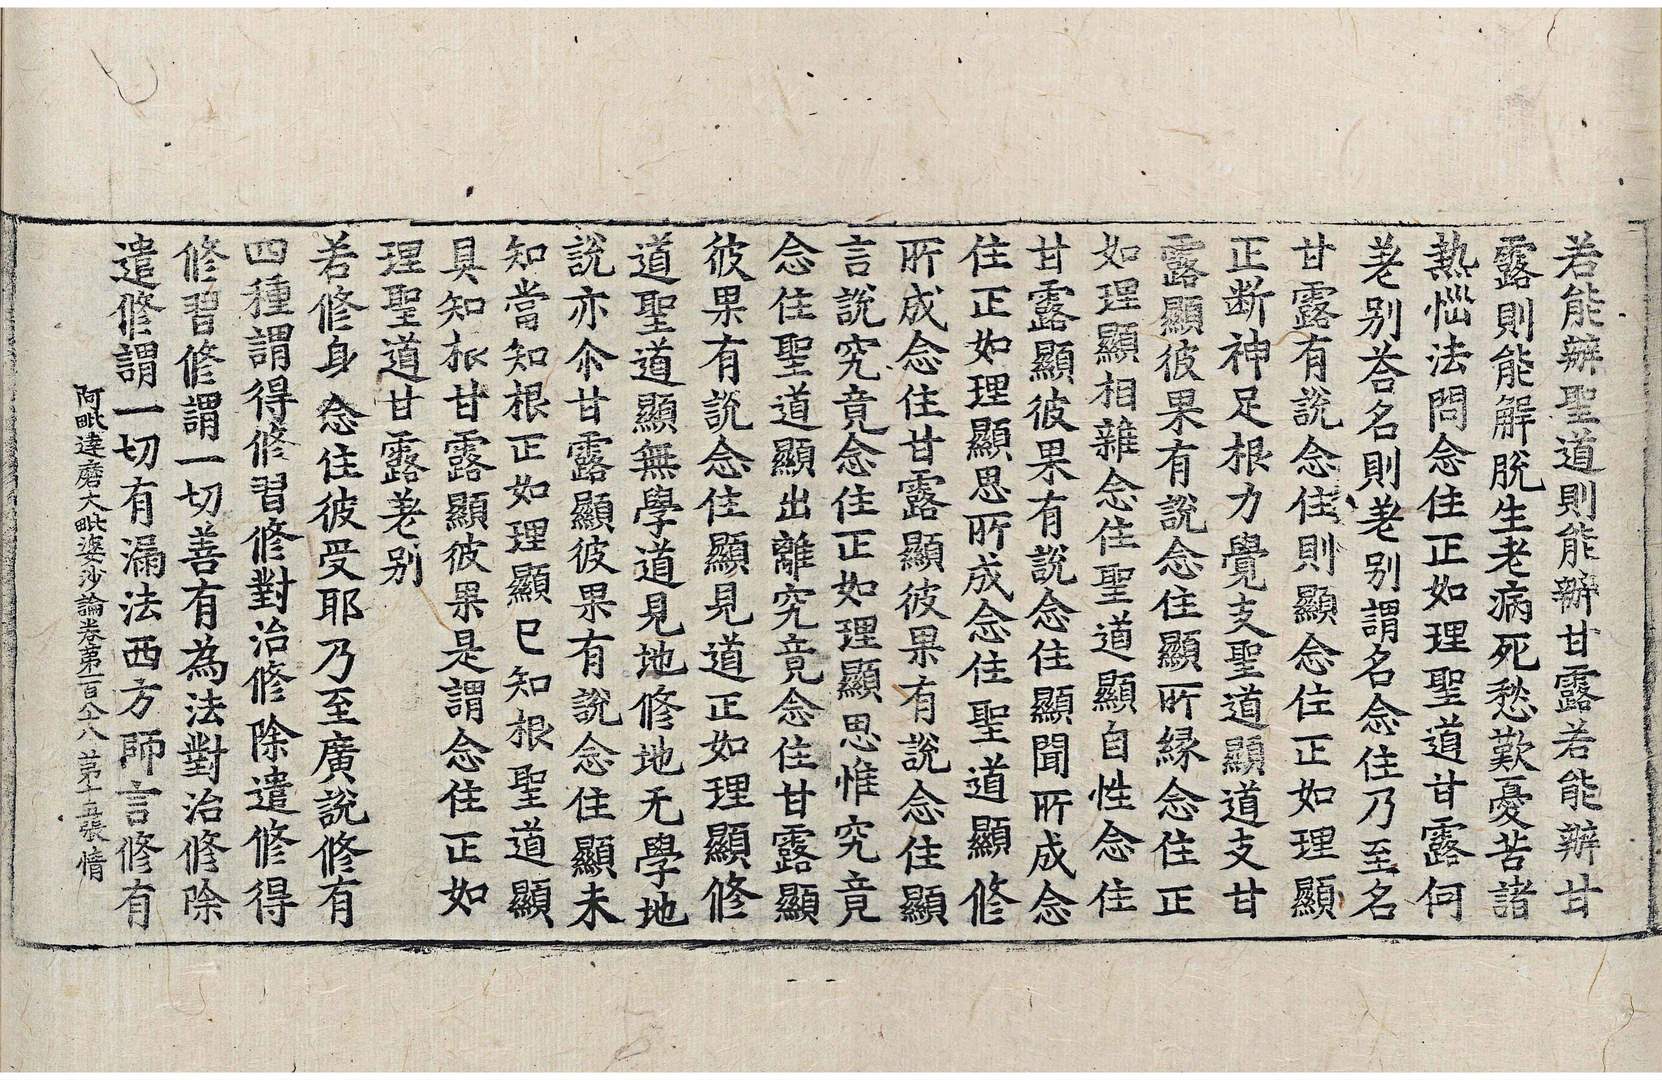 若能辦聖道則能辦甘露若能辦甘
露則能解脫生老病死愁歎憂苦諸
熱惱法問念住正如理聖道甘露何
差别荅名則差别謂名念住乃至名
甘露有說念住則顯念住正如理顯
正断神足根力覺支聖道顯道支甘
露顯彼果有說念住顯所緣念住正
如理顯相雜念住聖道顯自性念住
甘露顯彼果有說念住顯聞所成念
住正如理顯思所成念住聖道顯修
所成念住甘露顯彼果有說念住顯
言說究竟念住正如理顯思惟究竟
念住聖道顯出離究竟念住甘露顯
彼果有說念住顯見道正如理顯修
道聖道顯無學道見地修地无學地
說亦尒甘露顯彼果有說念住顯未
知當知根正如理顯已知根聖道顯
具知根甘露顯彼果是謂念住正如
理聖道甘露差别
若修身念住彼受耶乃至廣說修有
四種謂得修習修對治修除遣修得
修習修謂一切善有為法對治修除
遣修謂一切有漏法西方師言修有
阿毗達磨大毗婆沙論卷第一百八十八 第十五張 情